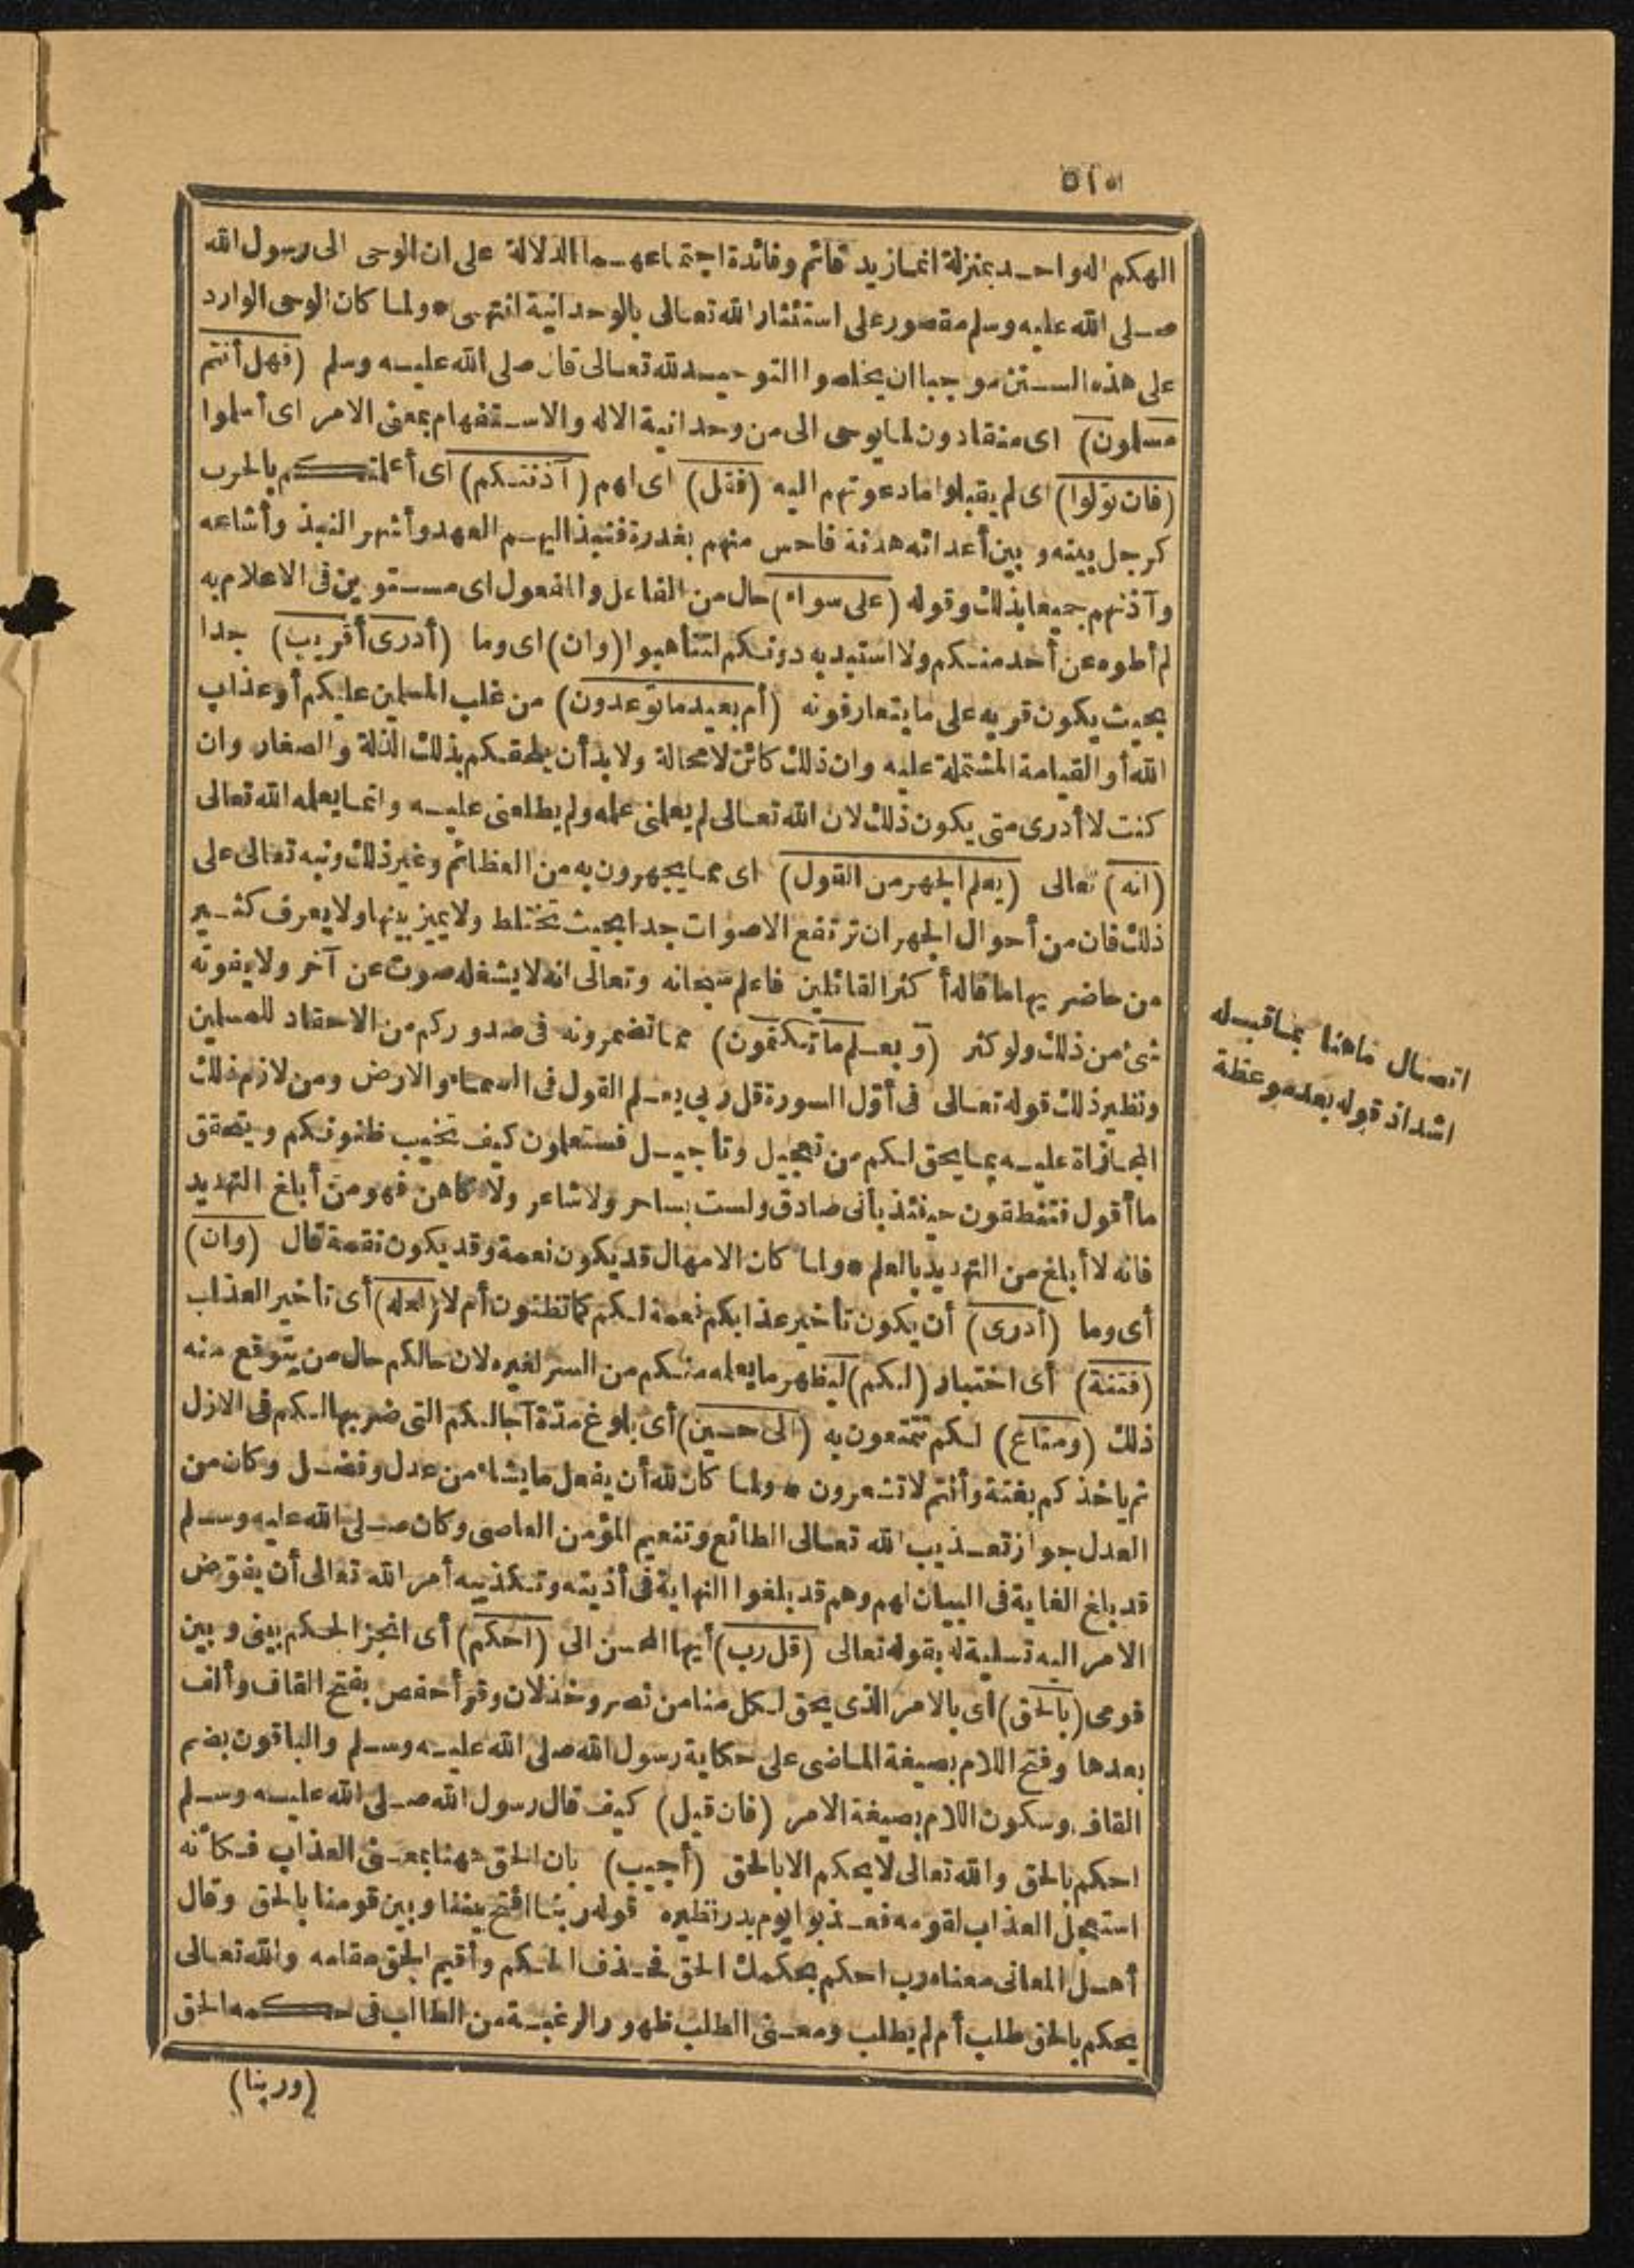 الهكم اله واحد بمنزلة انما زيد قائم وفائدة اجتماعهما الدلالة على ان الوحى الى رسول الله
صلى الله عليه وسلم مقصور على استئثار الله تعالى بالوحدانية انتهى * ولما كان الوحى الوارد
على هذه السنن موجبا ان يخلصوا التوحيد لله تعالى قال صلى الله عليه وسلم (فهل أنتم
مسلمون) اى منقادون لما يوحى الى من وحدانية الاله والاستفهام بمعنى الامر اى أسلموا
(فان تولوا) اى لم يقبلوا ما دعوتهم اليه (فقل) اى لهم (آذنتكم) اى أعلمتكم بالحرب
كرجل بينه وبين أعدائه هدنة فاحس منهم بغدرة فنبذ اليهم العهد وأشهر النبذ وأشاعه
وآذنهم جميعا بذلك وقوله (على سواء) حال من الفاعل والمفعول اى مستوين فى الاعلام به
لم أطوه عن أحد منكم ولا استبد به دونكم لتتأهبوا (وان) اى وما (أدرى أقريب) جدا
بحيث يكون قربه على ما يتعارفونه (أم بعيد ما توعدون) من غلب المسلمين عليكم أو عذاب
الله أو القيامة المشتملة عليه وان ذلك كائن لا محالة ولا بد أن يلحقكم بذلك الذلة والصغار وان
كنت لا أدرى متى يكون ذلك لان الله تعالى لم يعلمنى علمه ولم يطلعنى عليه وانما يعلمه الله تعالى
(انه) تعالى (يعلم الجهر من القول) اى مما يجهرون به من العظائم وغير ذلك ونبه تعالى على
ذلك فان من أحوال الجهر ان ترتفع الاصوات جدا بحيث تختلط ولا يميز بينها ولا يعرف كثير
من حاضريها ما قاله أكثر القائلين فاعلم سبحانه وتعالى انه لا يشغله صوت عن آخر ولا يفوته
شئ من ذلك ولو كثر (ويعلم ما تكتمون) مما تضمرونه فى صدوركم من الاحقاد للمسلمين
ونظير ذلك قوله تعالى فى أوّل السورة قل ربى يعلم القول فى السماء والارض ومن لازم ذلك
المجازاة عليه بما يحق لكم من تعجيل وتأجيل فستعلمون كيف تخيب ظنونكم ويتحقق
ما أقول فتنطقون حينئذ بأنى صادق ولست بساحر ولا شاعر ولا كاهن فهو من أبلغ التهديد
فانه لا أبلغ من التهديد بالعلم * ولما كان الامهال قد يكون نعمة وقد يكون نقمة قال (وان)
أى وما (أدرى) أن يكون تأخير عذابكم نعمة لكم كما تظنون أم لا (لعله) أى تأخير العذاب
(فتنة) أى اختبار (لكم) ليظهر ما يعلمه منكم من السر لغيره لان حالكم حال من يتوقع منه
ذلك (ومتاع) لكم تتمتعون به (الى حين) أى بلوغ مدّة آجالكم التى ضربها لكم فى الازل
ثم يأخذكم بغتة وأنتم لا تشعرون * ولما كان لله أن يفعل ما يشاء من عدل وفضل وكان من
العدل جواز تعذيب الله تعالى الطائع وتنعيم المؤمن العاصى وكان صلى الله عليه وسلم
قد بلغ الغاية فى البيان لهم وهم قد بلغوا النهاية فى أذيته وتكذيبه أمر الله تعالى أن يفوّض
الامر اليه تسلية له بقوله تعالى (قل رب) أيها المحسن الى (احكم) أى انجز الحكم بينى وبين
قومى (بالحق) أى بالامر الذى يحق لكل منا من نصر وخذلان وقرأ حفص بفتح القاف وألف
بعدها وفتح اللام بصيغة الماضى على حكاية رسول الله صلى الله عليه وسلم والباقون بضم
القاف وسكون اللام بصيغة الامر (فان قيل) كيف قال رسول الله صلى الله عليه وسلم
احكم بالحق والله تعالى لا يحكم الا بالحق (أجيب) بان الحق ههنا بمعنى العذاب فكأنه
استعجل العذاب لقومه فعذبوا يوم بدر نظيره قوله ربنا افتح بيننا وبين قومنا بالحق وقال
أهل المعانى معناه رب احكم بحكمك الحق فحذف الحكم وأقيم الحق مقامه والله تعالى
يحكم بالحق طلب أم لم يطلب ومعنى الطلب ظهور الرغبة من الطالب فى حكمه الحق
(وربنا)
اتصال ماهنا بماقبله
قوله بعد موعظة